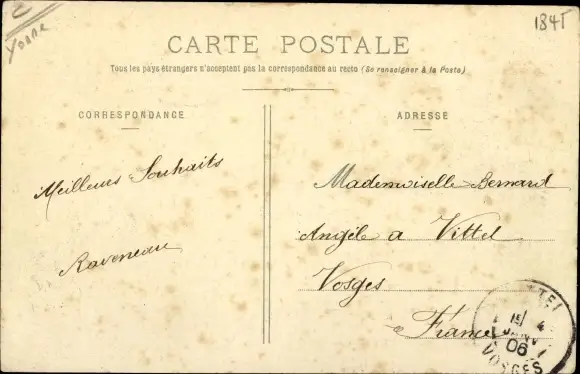 Yonne
184T
CARTE POSTALE
Tous les pays étrangers n'acceptent pas la correspondance au recto (Se renseigner à la Poste)
CORRESPONDANCE
Meilleurs Souhaits
Raveneau
ADRESSE
Mademoiselle Bernard
Angèle a Vittel
Vosges
France
06
VOSGES